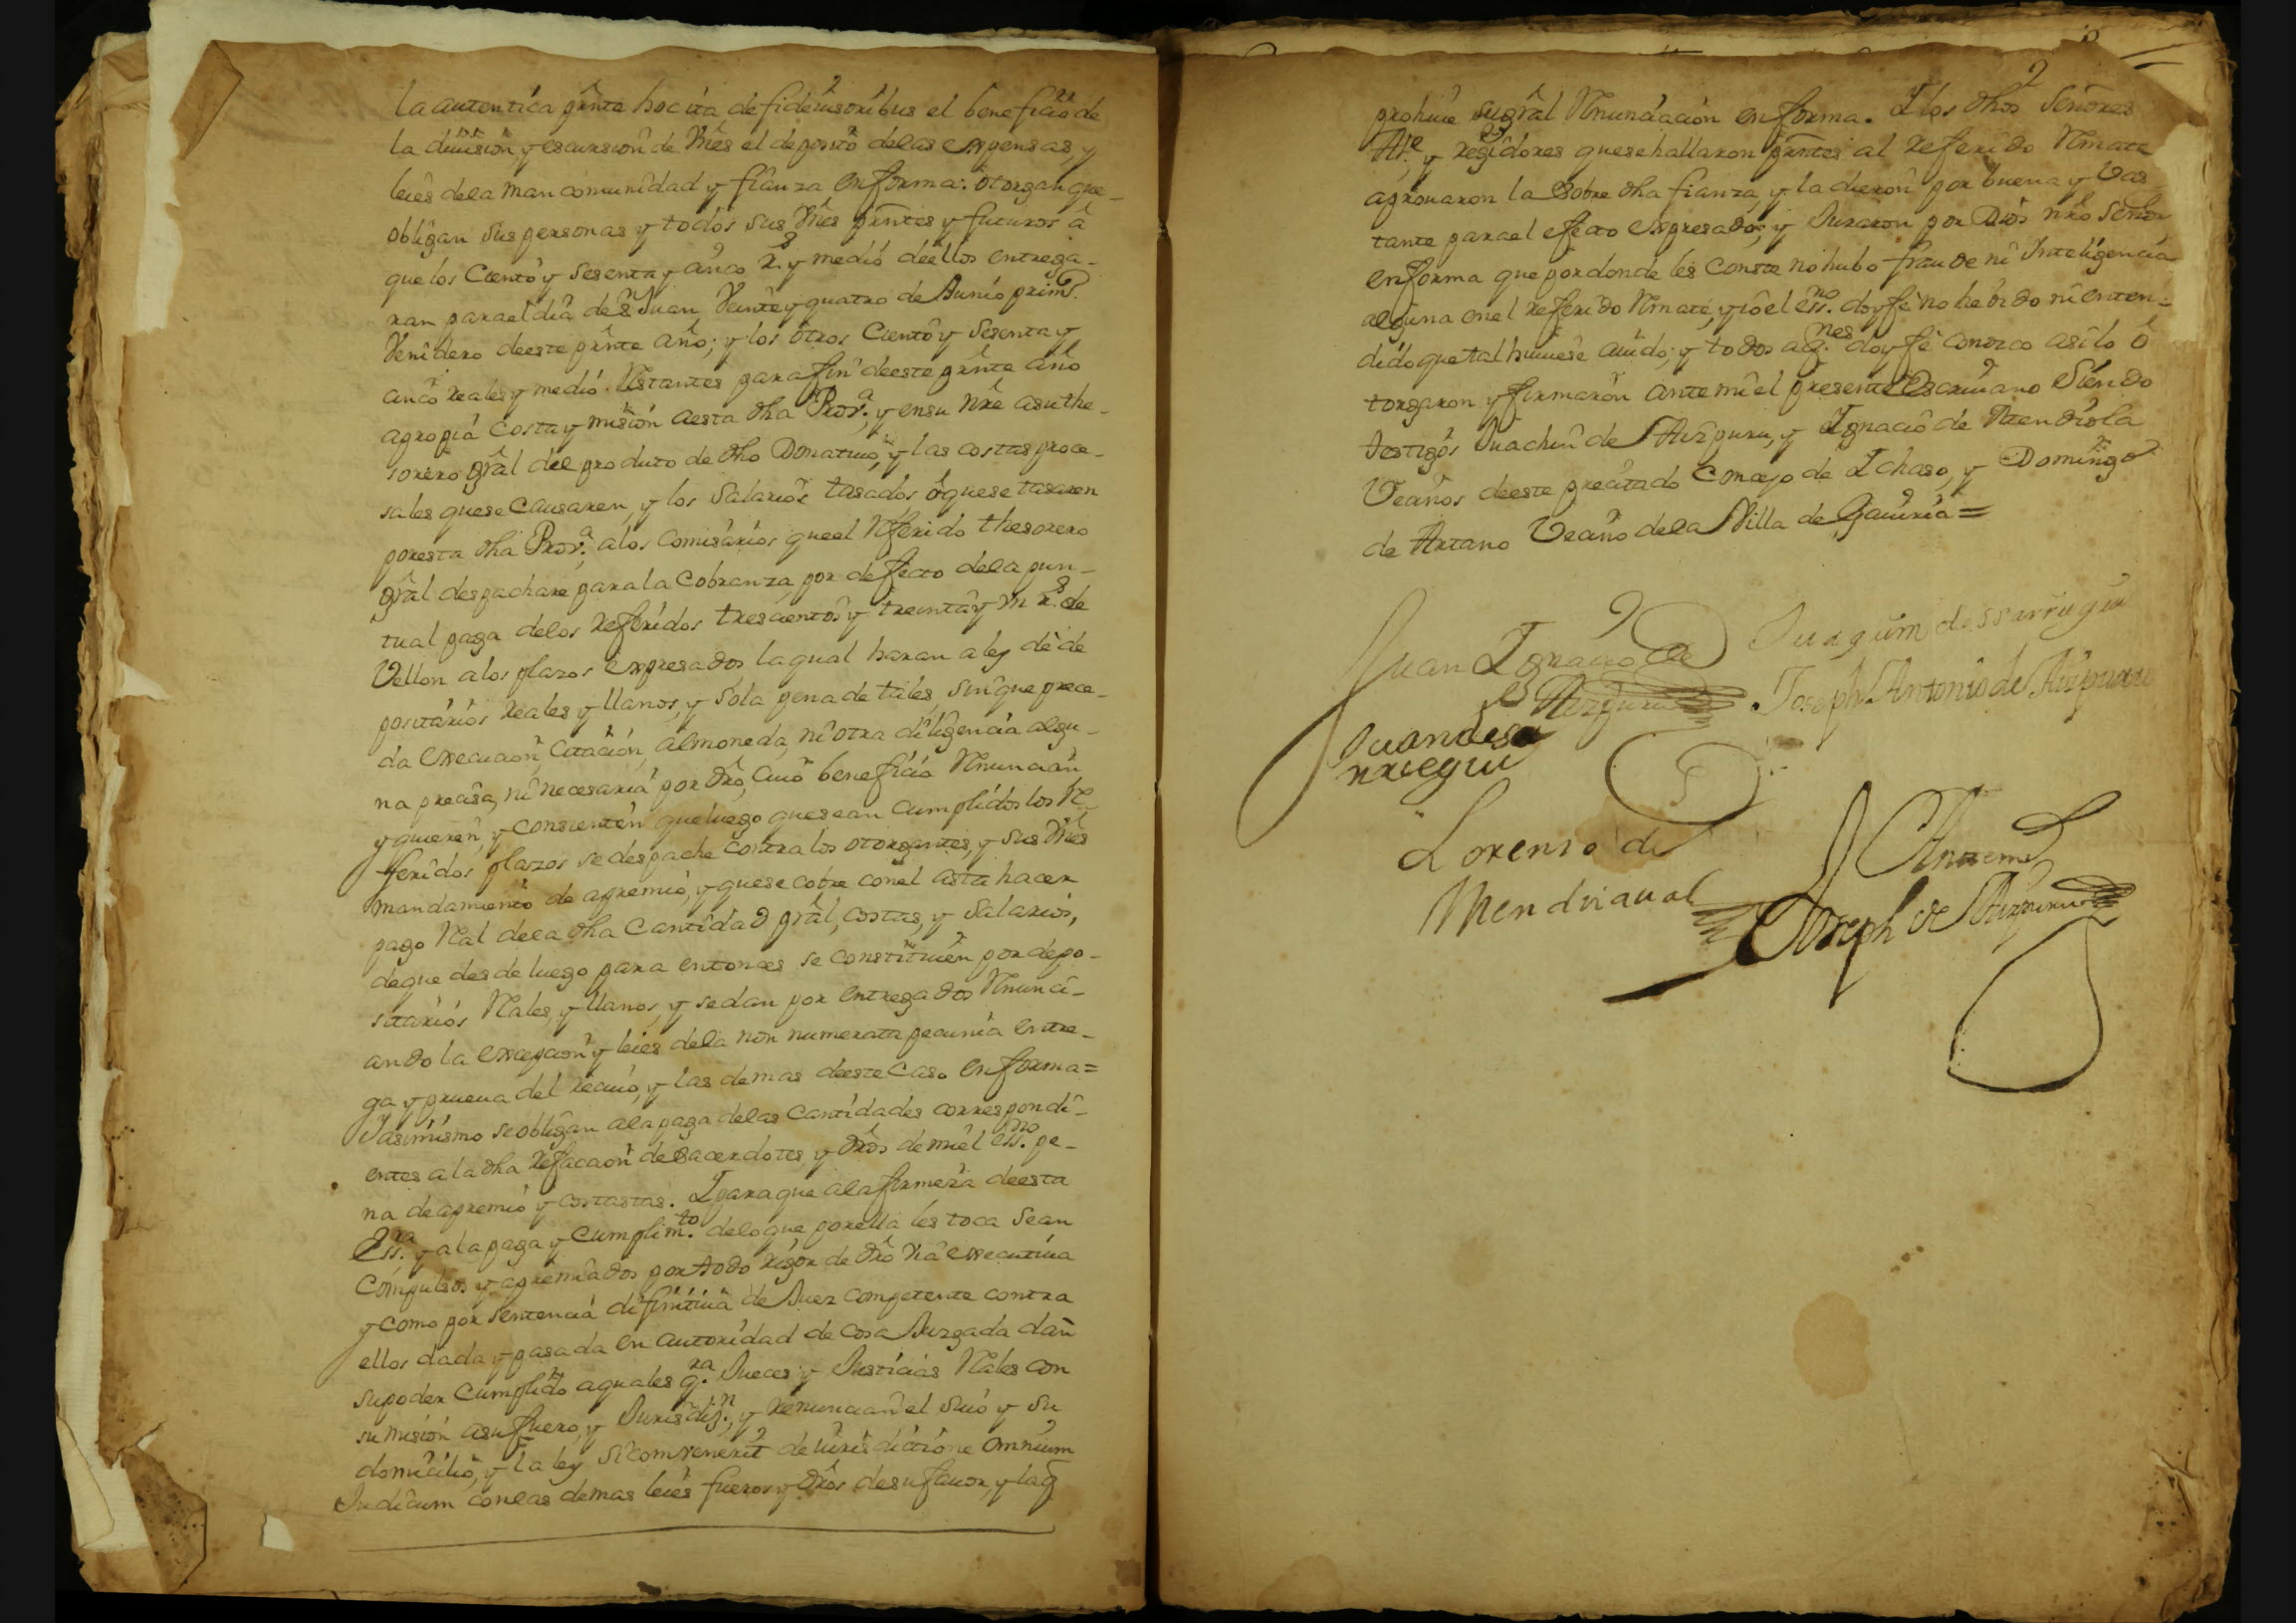 la autentica pnte hoc ita de fideiusoribus el beneficio de
la diuision, y escursion de Vnes el deposito delas expensas, y
leies dela mancomunidad y fianza en forma: otorgan que
obligan sus personas y todos sus Vnes pntes y futuros â
que los Ciento y sesenta y cinco r.s y medio deellos entrega-
ran parael dia de sn Juan Veinte y quatro de Junio prim.o
Venidero deeste pnte año; y los otros Ciento y sesenta y
cinco reales y medio Restantes para fin deeste pnte año
apropia Costa y mision aesta dha Prov.a, y ensu nre asuthe-
sorero gral del produto de dho Donatiuo, y las costas proce-
sales quese Causaren, y los Salarios tasados ô quese tasaren
poresta dha Prov.a, alos Comisarios queel Referido thesorero
gral despachare parala Cobranza, por defecto dela pun-
tual paga delos Referidos trescientos y treinta y un r.s de
Vellon alos plazos expresados laqual haran aley de de
positarios Reales y llanos, y sola pena de tales, sinque prece-
da execucion, Citacion, almoneda, ni otra diligencia algu-
na precisa, ni necesaria por dro, cuio beneficio Renuncian
y quieren, y consienten queluego quesean Cumplidos los Re-
feridos plazos se despache contra los otorgantes, y sus Vnes
mandamiento de apremio, y quese cobre conel asta hacer
pago Real dela dha Cantidad pral, costas, y salarios,
deque desde luego para entonces se constituien por depo-
sitarios Reales, y llanos, y sedan por entregados Renunci-
ando la excepcion y leies dela non numerata pecunia entre-
ga y prueua del reciuo, y las demas deeste Caso en forma=
Y asimismo se obligan ala paga delas Cantidades correspondi-
entes ala dha Refaccion de Sacerdotes y dros de mi el ess.no pe-
na de apremio y costastas. Y para que ala firmeza deesta
Ess.ra y ala paga y Cumplim.to delo que por ella les toca sean
Compulsos y apremiados por todo rigor de dro via executiua
y como por sentencia difinitiua de Juez competente contra
ellos dada y pasada en autoridad de Cosa Juzgada dan
supoder Cumplido aquales q.ra Jueces y Justicias Reales con
sumision asu fuero, y Jurisdiz.n, y renuncian el suio y su
domicilio, y la ley si convenerit de iurisdictione omnium
Judicum conlas demas leies fueros y dros desu fauor, y laq
prohiue sugral Renunciacion en forma. Y los dhos Señores
Al.e y regidores quesehallaron pntes al referido Remate
aprouaron la sobre dha fianza, y la dieron por buena y Vas-
tante parael efecto expresado; y Juraron por Dios nro señor
en forma que por donde les conste no hubo fraude ni Inteligencia
alguna enel referido Remate, y io el ess.no doyfe no he oido ni enten-
dido que tal huuiese auido; y todos aq.nes doyfe conozco asilo ô
torgaron y firmaron ante mi el presente Escriuano siendo
testigos Juachin de Aizpuru, y Ignacio de Mendiola
Vecinos deeste precitado Concejo de Ichaso, y Domingo
de Artano Vecino dela Villa de Gauiria=
Juan Ignacio de
Aizpuru
Juaquim de ssarriegui
Joseph Antonio de Aizpuru
Juan de sa
rriegui
Lorenso de
Mendiraual
Antemi
Joseph de Aizpuru